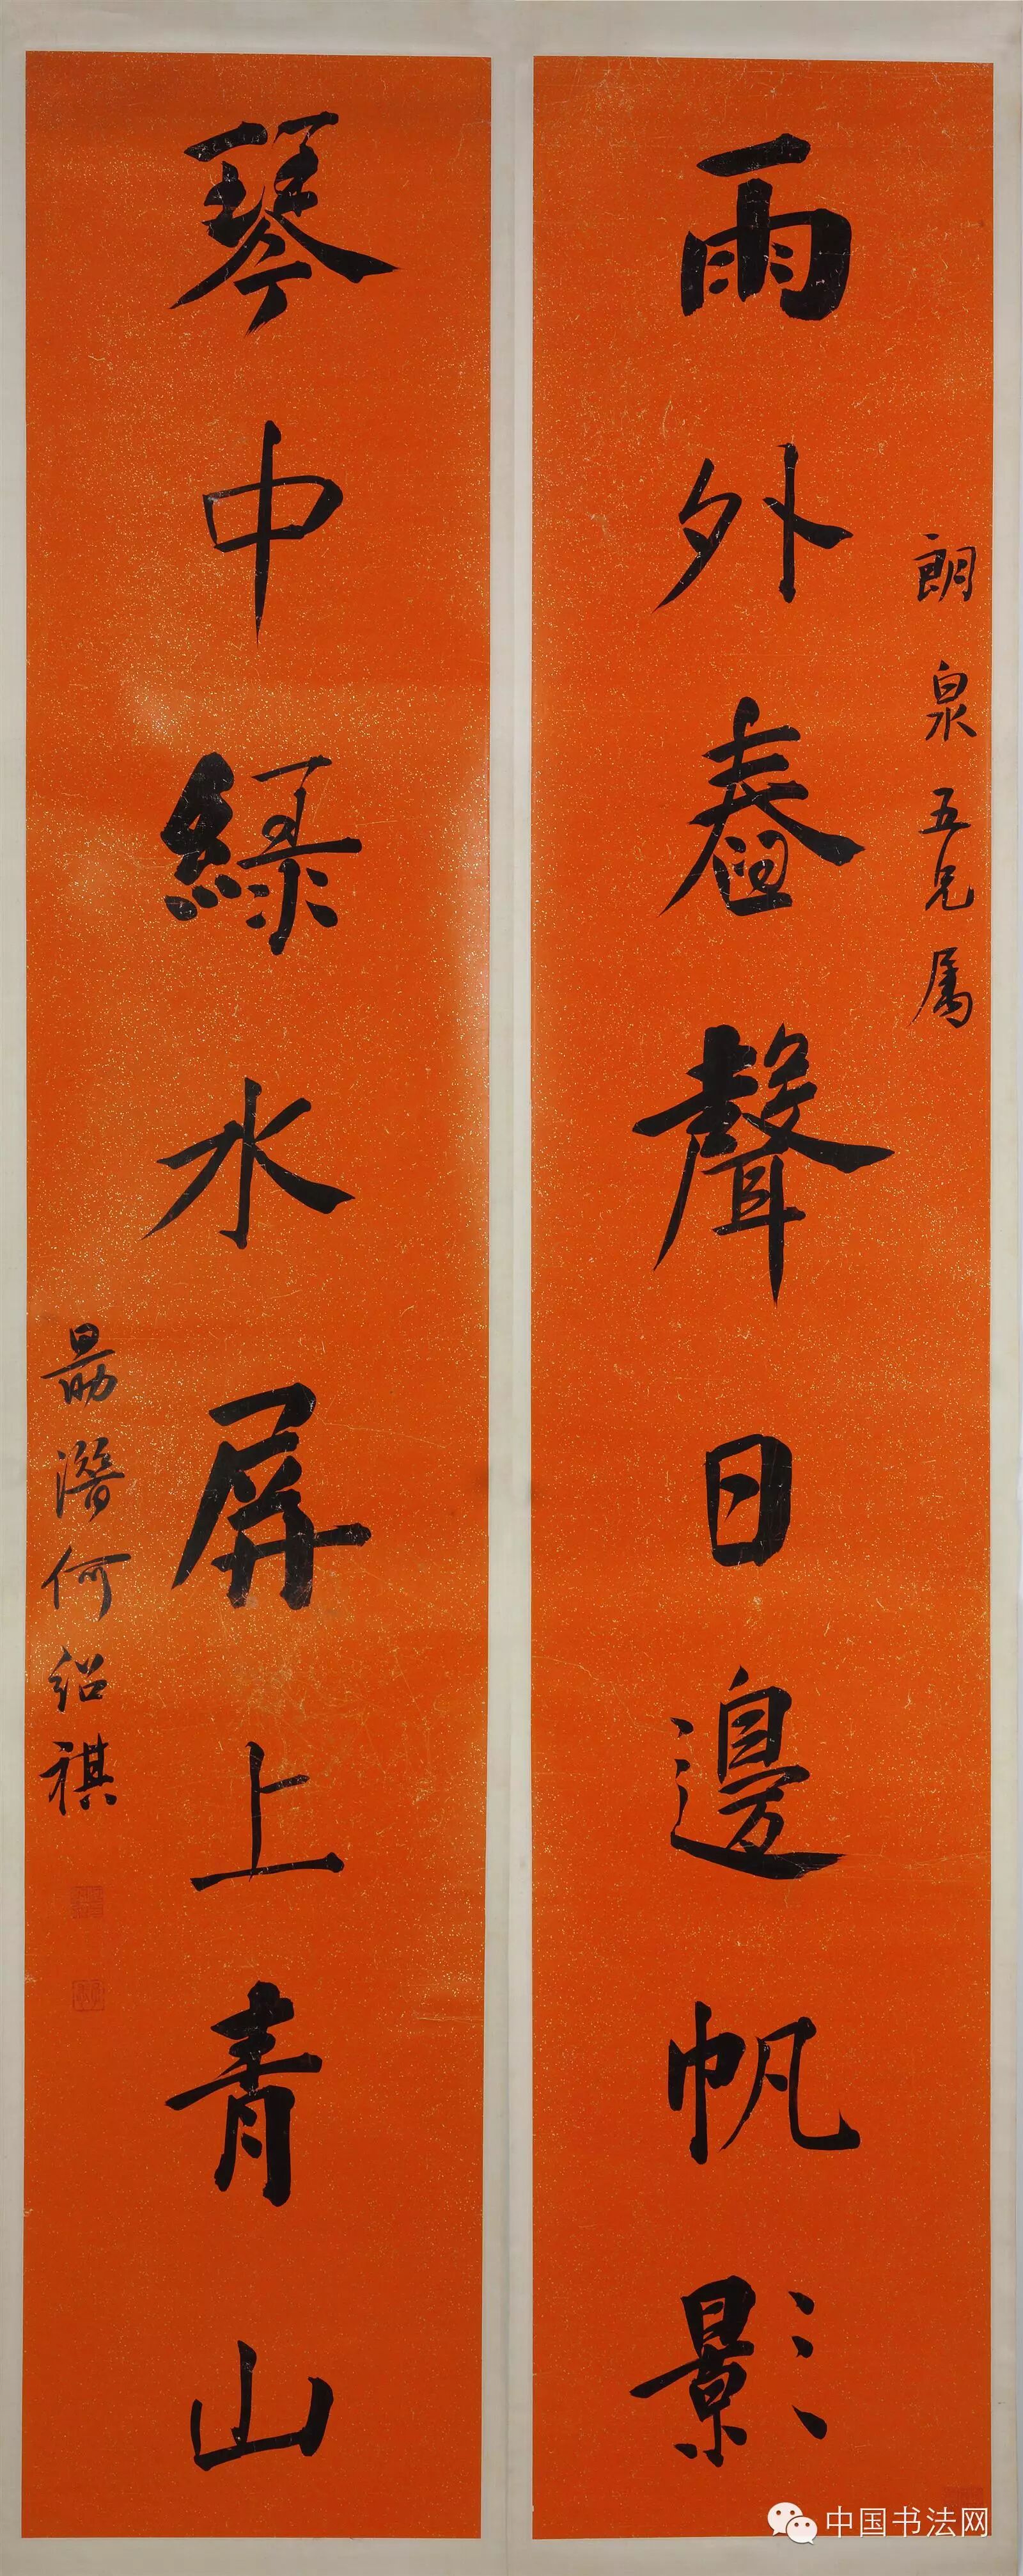 朗泉五兄属
雨外舂聲日邊帆影
琴中綠水屏上青山
勗潛何紹祺
中国书法网